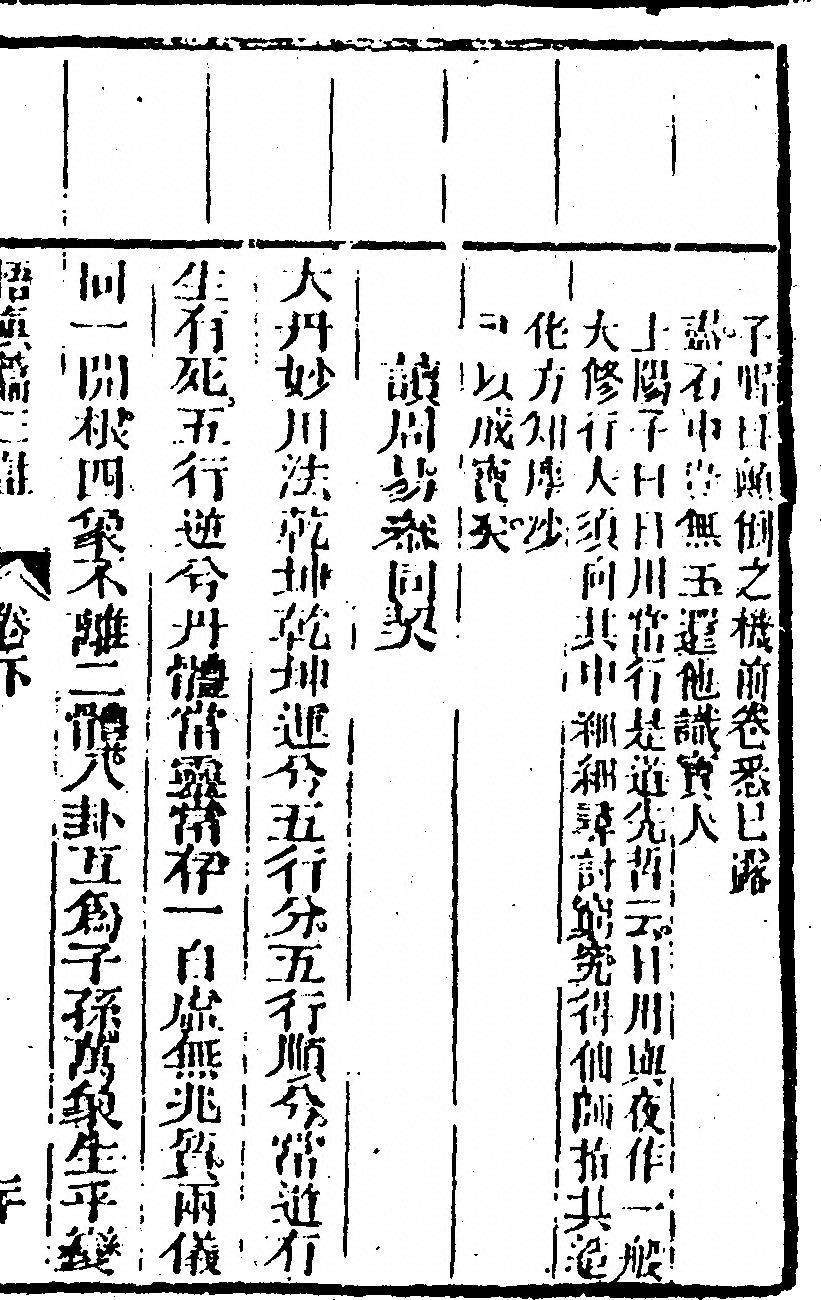 子野曰顛倒之機前卷悉已露
盡石中豈無玉遲他識寶人
上陽子曰日用常行是道先哲云日用與夜作一般
大修行人須向其中細細尋討窮究得仙師指其造
化方知塵沙
可以成寶矣
讀周易參同契
大丹妙用法乾坤乾坤運兮五行分五行順兮常道有
生有死五行逆兮丹體常靈常存一自虛無兆質兩儀
同一開根四象不離二體八卦互爲子孫萬象生乎變
悟真篇三註 卷下